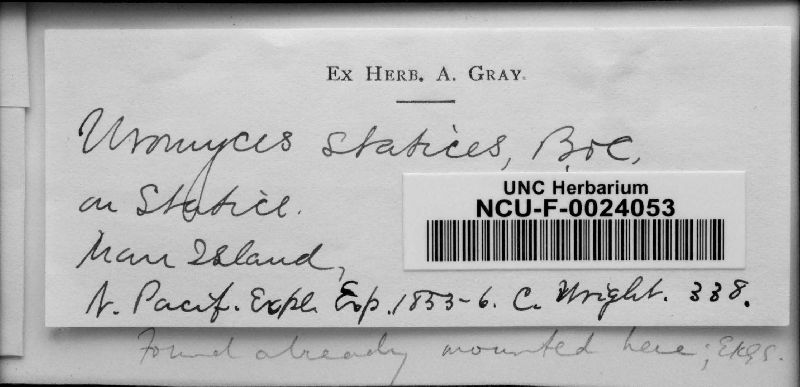 Ex Herb. A. Gray.
Uromyces Statices, B & C.
on Statice.
UNC Herbarium
NCU-F-0024053
Island,
N. Pacif. Expl. Exp. 1853-6. C. Wright. 338.
Found already mounted here;